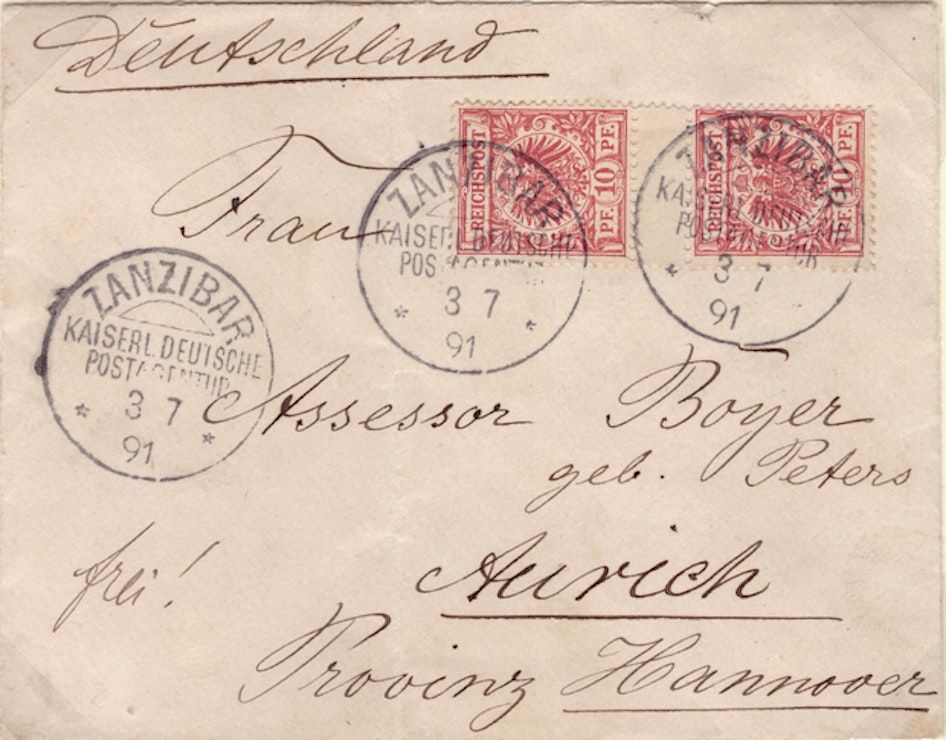 Deutschland
REICHSPOST
10
PF. PF.
REICHSPOST
10
PF. PF.
Frau
ZANZIBAR
KAISERL. DEUTSCHE
POSTAGENTUR
3 7
91
ZANZIBAR
KAISERL. DEUTSCHE
POSTAGENTUR
3 7
91
ZANZIBAR
KAISERL. DEUTSCHE
POSTAGENTUR
3 7
91
Assessor Boyer
geb. Peters
frei!
Aurich
Provinz Hannover